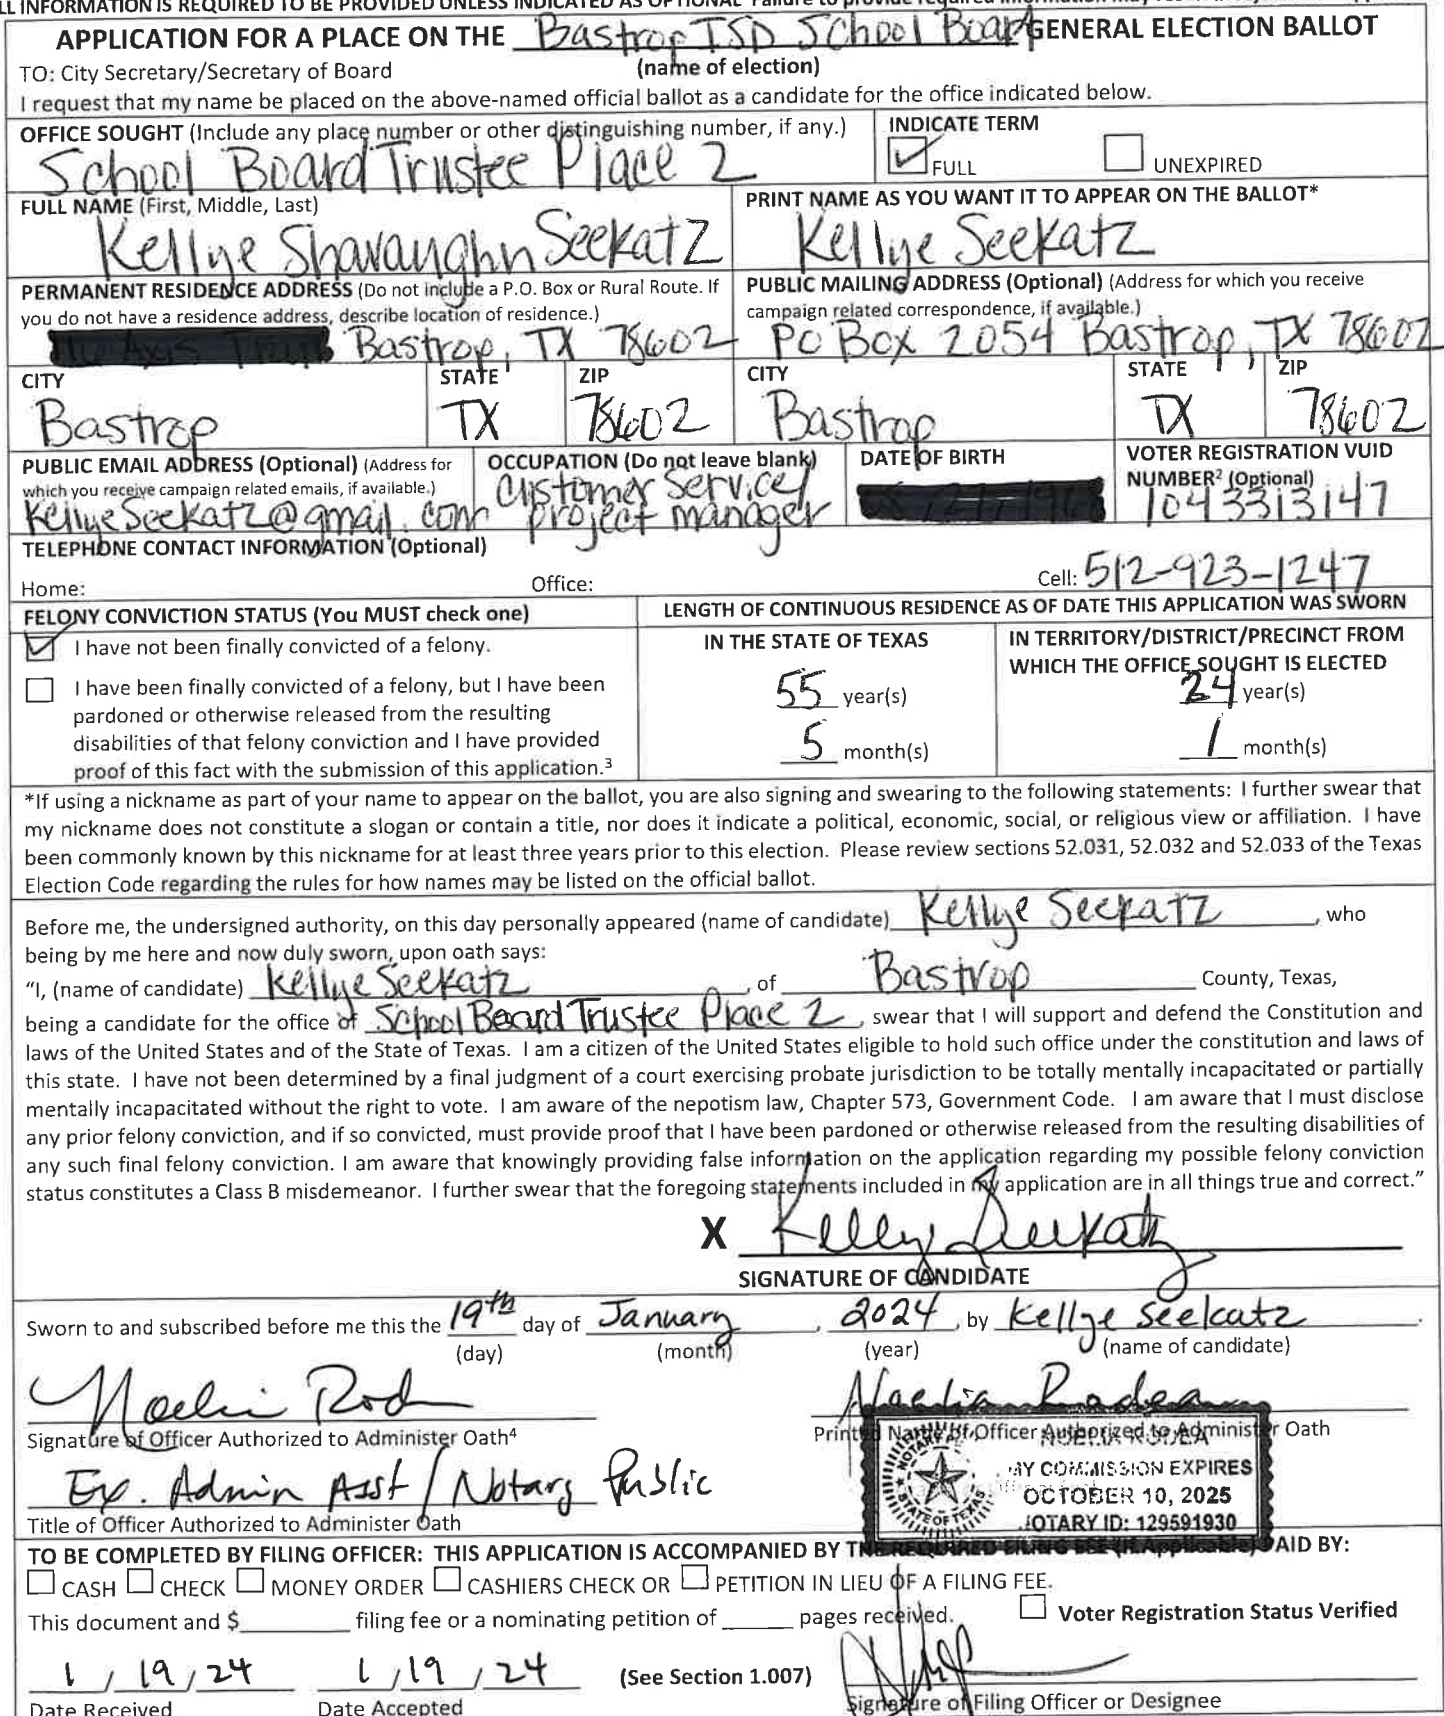 ALL INFORMATION IS REQUIRED TO BE PROVIDED UNLESS INDICATED AS OPTIONAL Failure to provide required information may
APPLICATION FOR A PLACE ON THE Bastrop ISD School Board GENERAL ELECTION BALLOT
TO: City Secretary/Secretary of Board (name of election)
I request that my name be placed on the above-named official ballot as a candidate for the office indicated below.
OFFICE SOUGHT (Include any place number or other distinguishing number, if any.) INDICATE TERM
School Board Trustee Place 2 FULL UNEXPIRED
FULL NAME (First, Middle, Last) PRINT NAME AS YOU WANT IT TO APPEAR ON THE BALLOT*
Kellye Shavaughn Seekatz Kellye Seekatz
PERMANENT RESIDENCE ADDRESS (Do not include a P.O. Box or Rural Route. If you do not have a residence address, describe location of residence.) PUBLIC MAILING ADDRESS (Optional) (Address for which you receive campaign related correspondence, if available.)
Bastrop, TX 78602 PO Box 2054 Bastrop, TX 78602
CITY STATE ZIP CITY STATE ZIP
Bastrop TX 78602 Bastrop TX 78602
PUBLIC EMAIL ADDRESS (Optional) (Address for which you receive campaign related emails, if available.) OCCUPATION (Do not leave blank) DATE OF BIRTH VOTER REGISTRATION VUID NUMBER² (Optional)
KellyeSeekatz@gmail.com Customer Service/ project manager 1043313147
TELEPHONE CONTACT INFORMATION (Optional)
Home: Office: Cell: 512-923-1247
FELONY CONVICTION STATUS (You MUST check one) LENGTH OF CONTINUOUS RESIDENCE AS OF DATE THIS APPLICATION WAS SWORN
I have not been finally convicted of a felony.
I have been finally convicted of a felony, but I have been
pardoned or otherwise released from the resulting
disabilities of that felony conviction and I have provided
proof of this fact with the submission of this application.³
IN THE STATE OF TEXAS
55 year(s)
5 month(s)
IN TERRITORY/DISTRICT/PRECINCT FROM
WHICH THE OFFICE SOUGHT IS ELECTED
24 year(s)
1 month(s)
*If using a nickname as part of your name to appear on the ballot, you are also signing and swearing to the following statements: I further swear that
my nickname does not constitute a slogan or contain a title, nor does it indicate a political, economic, social, or religious view or affiliation. I have
been commonly known by this nickname for at least three years prior to this election. Please review sections 52.031, 52.032 and 52.033 of the Texas
Election Code regarding the rules for how names may be listed on the official ballot.
Before me, the undersigned authority, on this day personally appeared (name of candidate) Kellye Seekatz, who
being by me here and now duly sworn, upon oath says:
"I, (name of candidate) Kellye Seekatz, of Bastrop County, Texas,
being a candidate for the office of School Board Trustee Place 2, swear that I will support and defend the Constitution and
laws of the United States and of the State of Texas. I am a citizen of the United States eligible to hold such office under the constitution and laws of
this state. I have not been determined by a final judgment of a court exercising probate jurisdiction to be totally mentally incapacitated or partially
mentally incapacitated without the right to vote. I am aware of the nepotism law, Chapter 573, Government Code. I am aware that I must disclose
any prior felony conviction, and if so convicted, must provide proof that I have been pardoned or otherwise released from the resulting disabilities of
any such final felony conviction. I am aware that knowingly providing false information on the application regarding my possible felony conviction
status constitutes a Class B misdemeanor. I further swear that the foregoing statements included in my application are in all things true and correct."
X Kellye Seekatz
SIGNATURE OF CANDIDATE
Sworn to and subscribed before me this the 19th day of January, 2024, by Kellye Seekatz.
(day) (month) (year) (name of candidate)
Noelia Rodea
Signature of Officer Authorized to Administer Oath⁴ Printed Name of Officer Authorized to Administer Oath
Ex. Admin Asst / Notary Public
Title of Officer Authorized to Administer Oath
NOTARY
STATE OF TEXAS
NOELIA RODEA
MY COMMISSION EXPIRES
OCTOBER 10, 2025
NOTARY ID: 129591930
TO BE COMPLETED BY FILING OFFICER: THIS APPLICATION IS ACCOMPANIED BY THE REQUIRED FILING FEE (If Applicable) PAID BY:
CASH CHECK MONEY ORDER CASHIERS CHECK OR PETITION IN LIEU OF A FILING FEE.
This document and $ filing fee or a nominating petition of pages received. Voter Registration Status Verified
1 / 19 / 24 1 / 19 / 24 (See Section 1.007)
Date Received Date Accepted Signature of Filing Officer or Designee